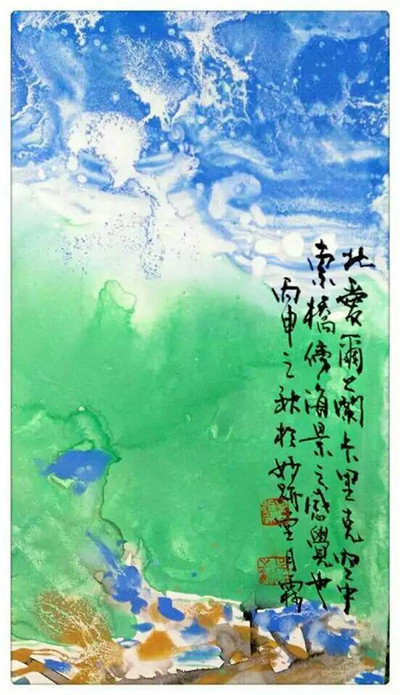 北愛爾蘭卡里克空中
索橋傍海景之感覺也
丙申之秋於妙跡堂月霜